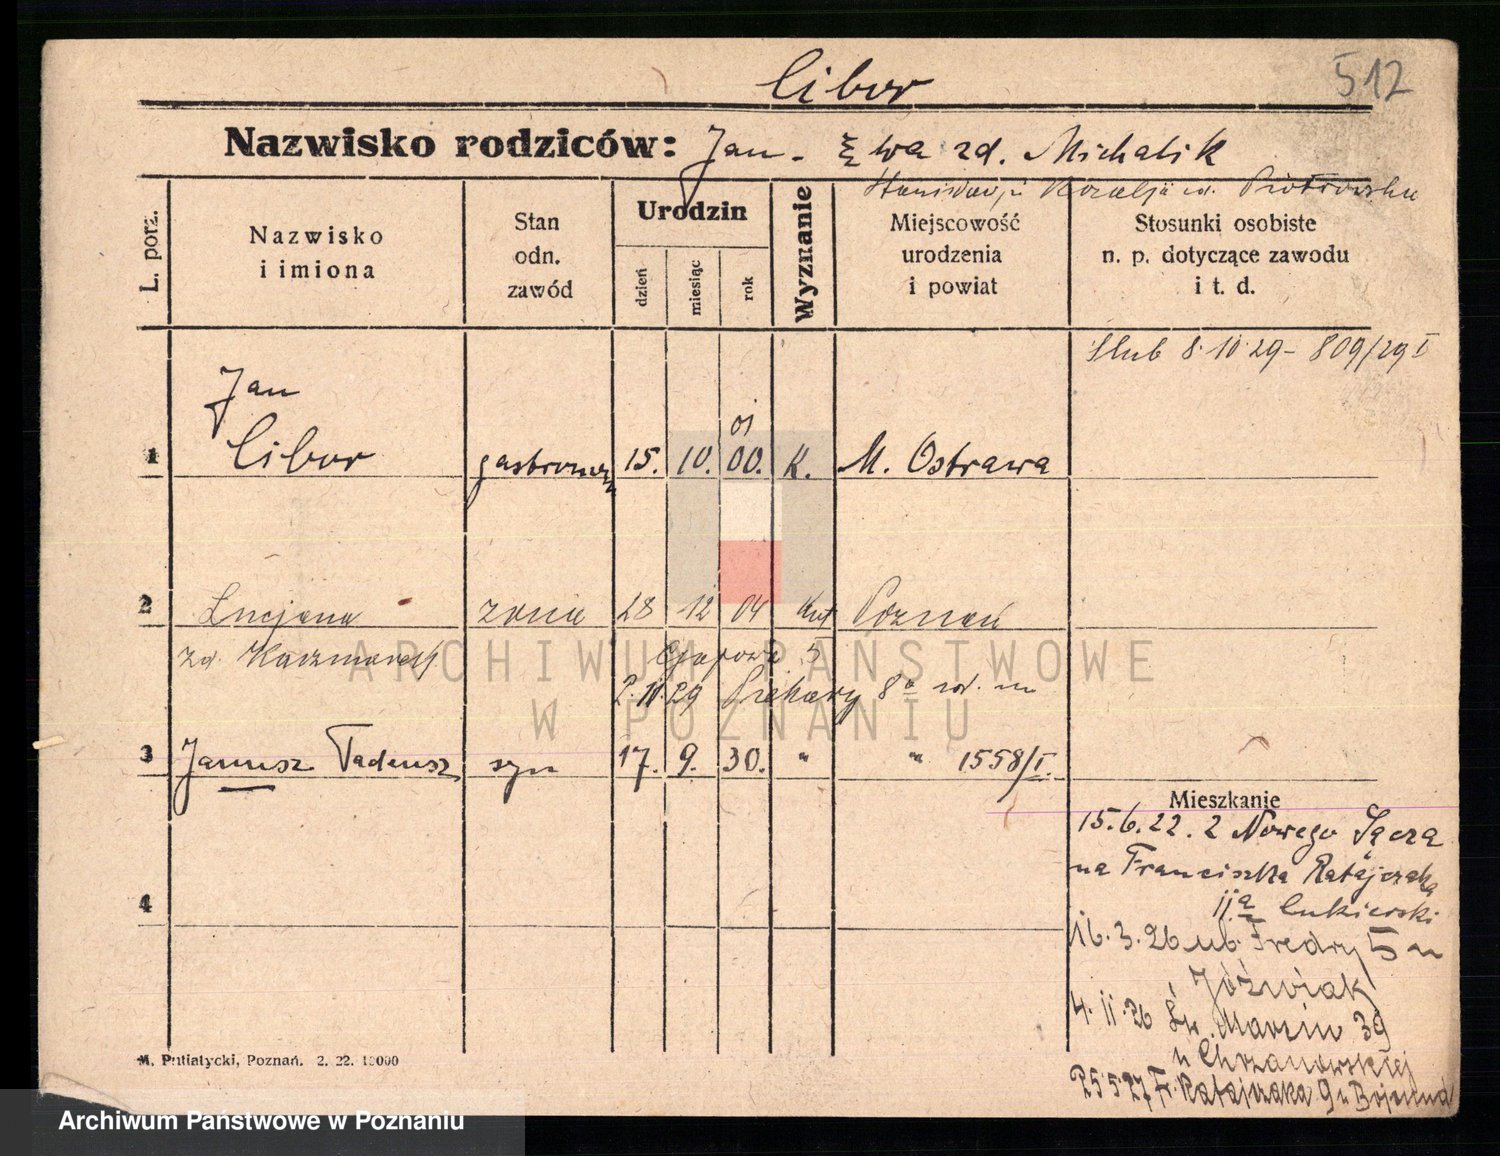 Cibor
512
Nazwisko rodziców: Jan - Ewa zd. Michalik
Stanisław i Rozalja zd. Piotrowska
L. porz.
Nazwisko
i imiona
Stan
odn.
zawód
Urodzin
dzień
miesiąc
rok
Wyznanie
Miejscowość
urodzenia
i powiat
Stosunki osobiste
n. p. dotyczące zawodu
i t. d.
Ślub 8.10.29 - 809/29 I
Jan
01
1 Cibor gastronom 15. 10. 00. K. M. Ostrawa
2 Lucjana żona 28 12 04 kat Poznań
zd. Kaczmarek 5
2.11.29 Piekary 8a
3 Janusz Tadeusz syn 17. 9. 30. " " 1558/I.
Mieszkanie
15.6.22. z Nowego Sącza
na Franciszka Ratajczaka
11a Cukierski
4
16.3.26 ul. Fredry 5 u
Jóźwiak
4.11.26 Św. Marcin 39
u Chrzanowskiej
25.5.27 Fr. Ratajczaka 9 u
M. Putiatycki, Poznań. 2. 22. 10000
ARCHIWUM PAŃSTWOWE
W POZNANIU
Archiwum Państwowe w Poznaniu